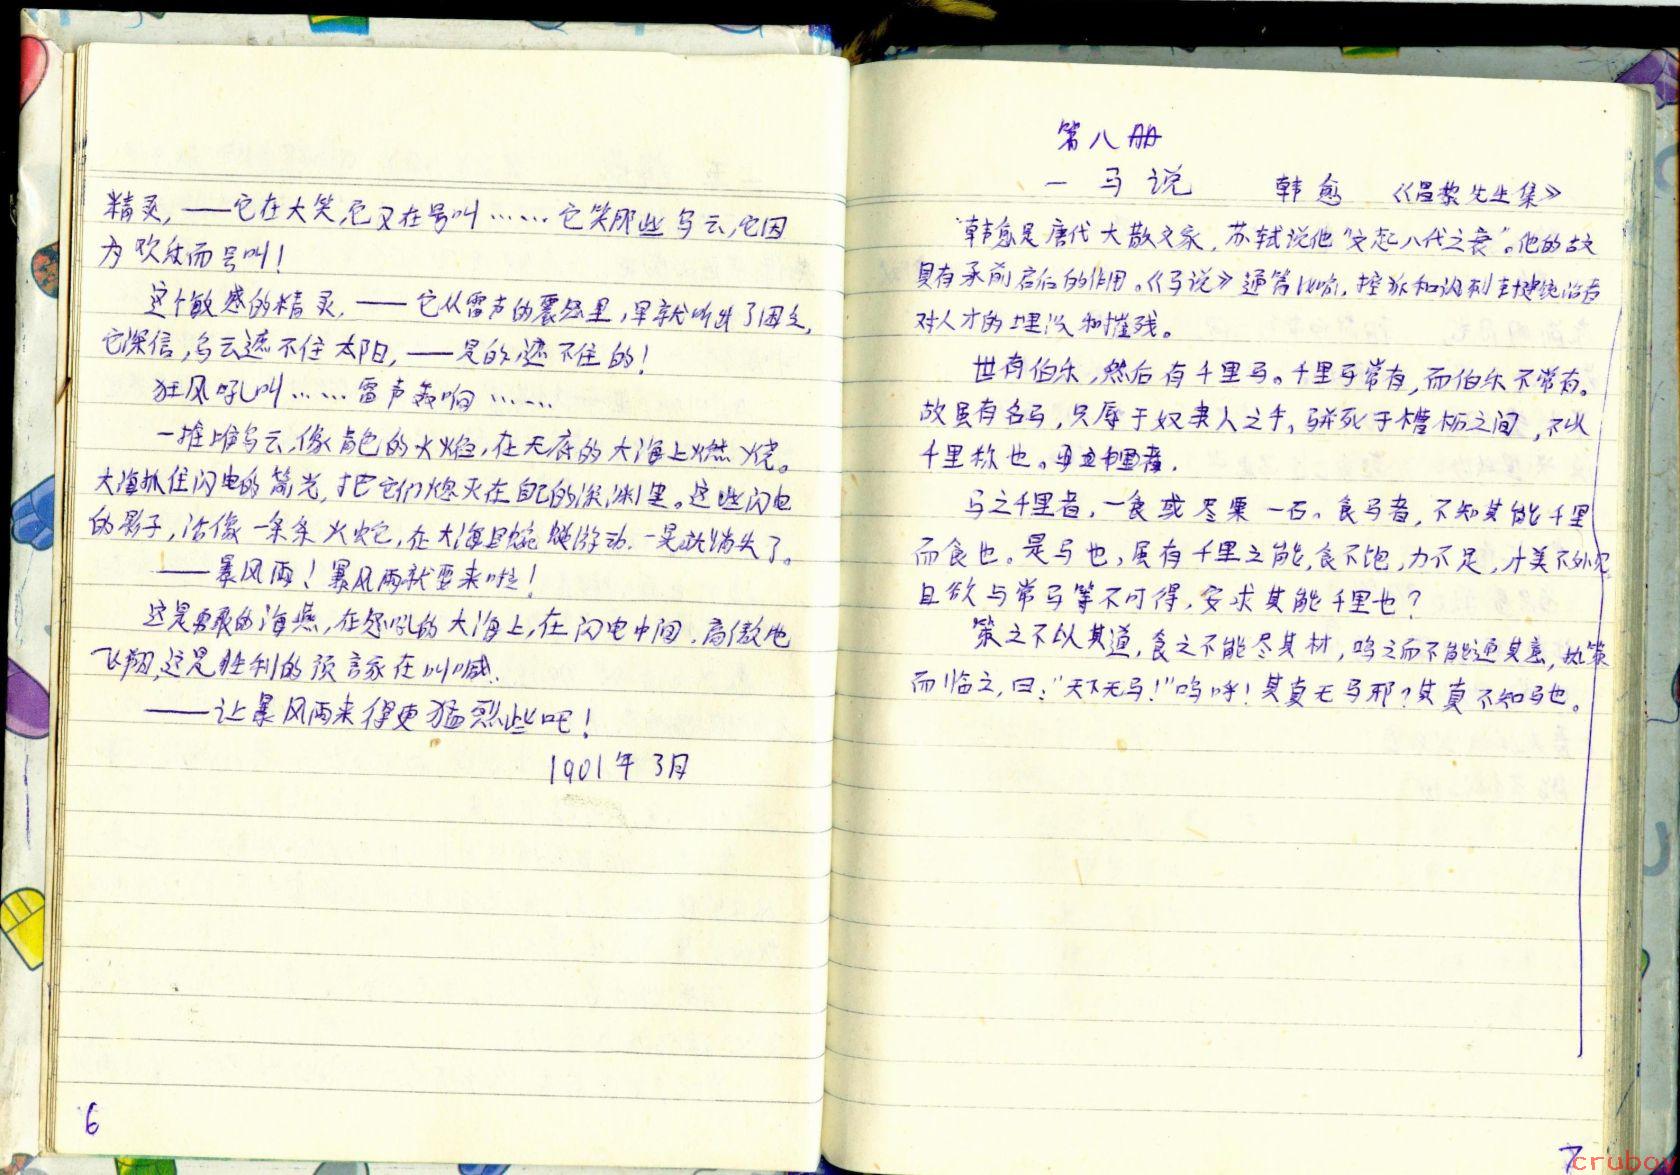 精灵,——它在大笑,它又在号叫……它笑那些乌云,它因
为欢乐而号叫!
这个敏感的精灵,——它从雷声的震怒里,早就听出了困乏,
它深信,乌云遮不住太阳,——是的,遮不住的!
狂风吼叫……雷声轰响……
一堆堆乌云,像青色的火焰,在无底的大海上燃烧。
大海抓住闪电的箭光,把它们熄灭在自己的深渊里。这些闪电
的影子,活像一条条火蛇,在大海里蜿蜒游动,一晃就消失了。
——暴风雨!暴风雨就要来啦!
这是勇敢的海燕,在怒吼的大海上,在闪电中间,高傲地
飞翔,这是胜利的预言家在叫喊.
——让暴风雨来得更猛烈些吧!
1901年3月
6
第八册
一 马说 韩愈 《昌黎先生集》
韩愈是唐代大散文家,苏轼说他“文起八代之衰”。他的古文
具有承前启后的作用。《马说》通篇比喻,控诉和讽刺封建统治者
对人才的埋没和摧残。
世有伯乐,然后有千里马。千里马常有,而伯乐不常有。
故虽有名马,只辱于奴隶人之手,骈死于槽枥之间,不以
千里称也。
马之千里者,一食或尽粟一石。食马者,不知其能千里
而食也。是马也,虽有千里之能,食不饱,力不足,才美不外见,
且欲与常马等不可得,安求其能千里也?
策之不以其道,食之不能尽其材,鸣之而不能通其意,执策
而临之,曰:“天下无马!”呜呼!其真无马邪?其真不知马也。
7
cruboy